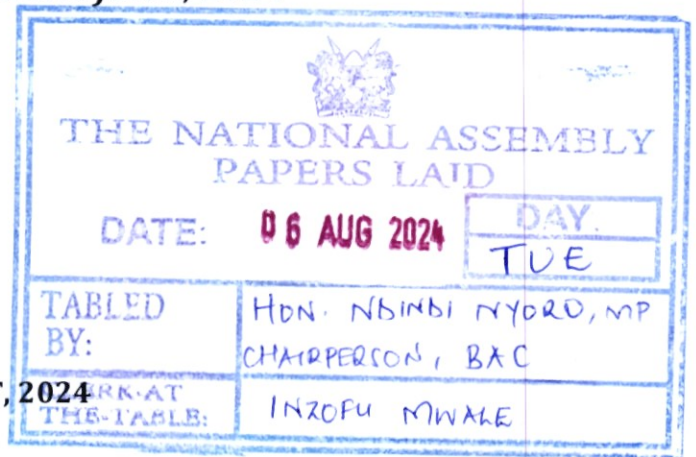 THE NATIONAL ASSEMBLY
PAPERS LAID
DATE: 06 AUG 2024
DAY.
TUE
TABLED BY:
HON. NDINDI NYORO, MP
CHAIRPERSON, BAC
, 2024
CLERK-AT THE-TABLE:
INZOFU MWALE